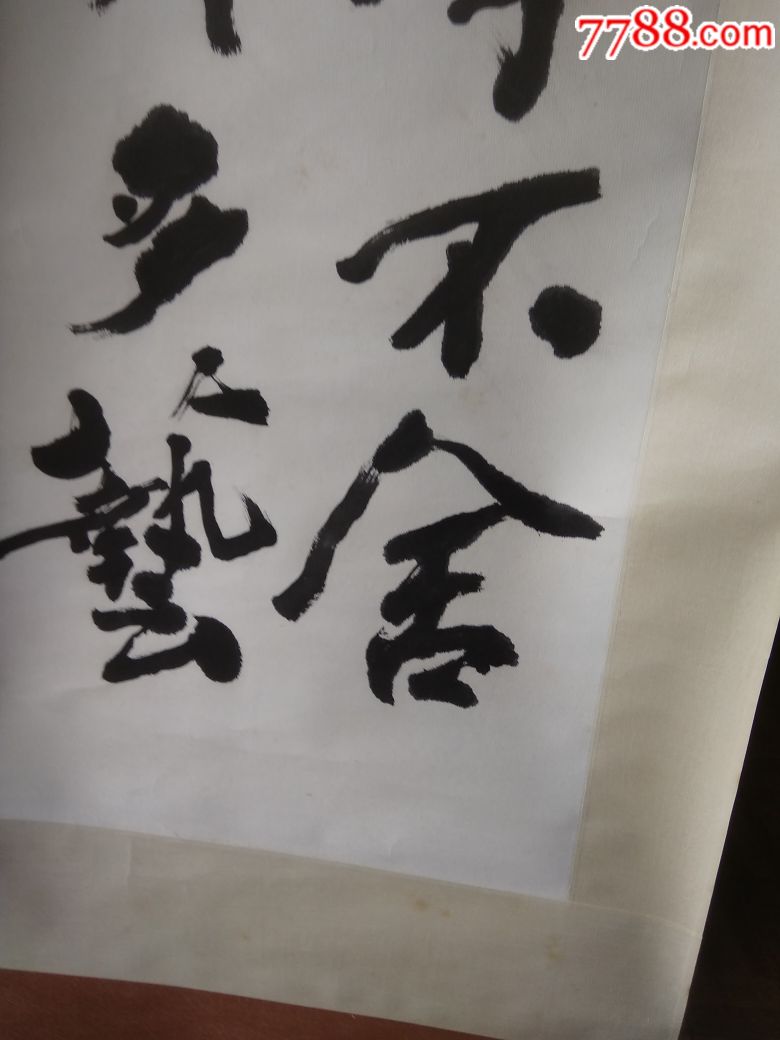 7788.com
不舍
多藝